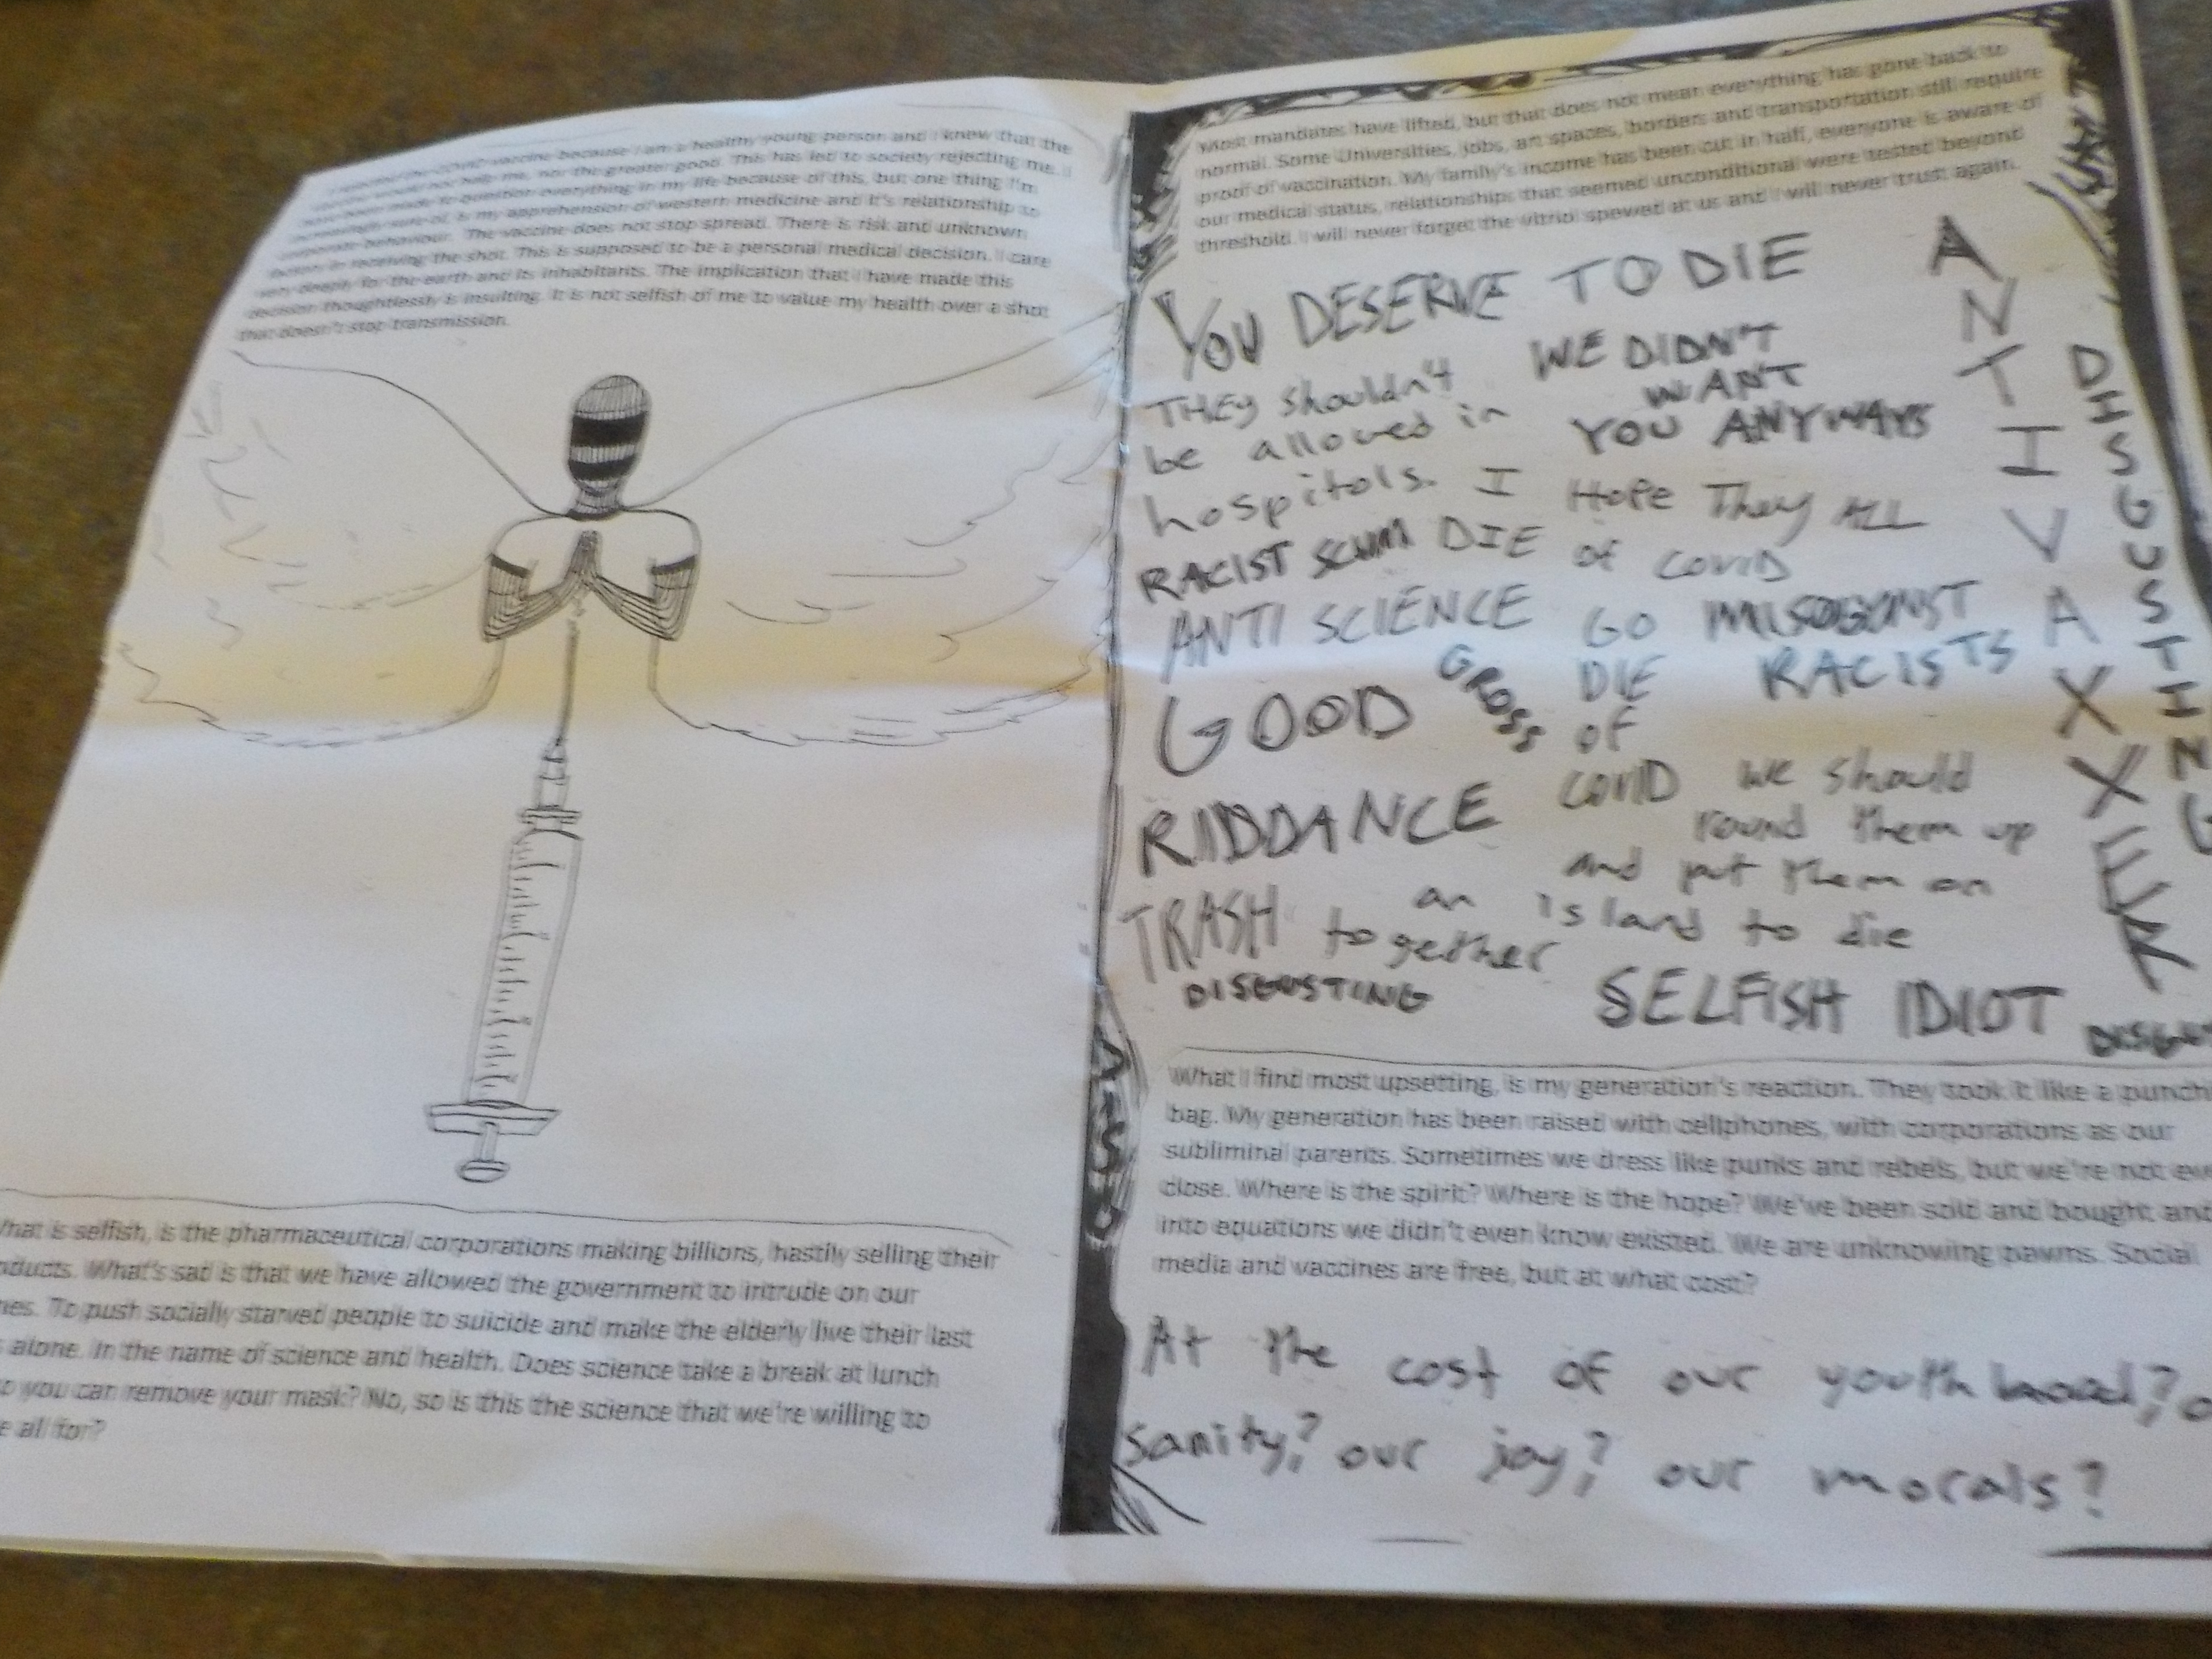 I rejected the COVID vaccine because I am a healthy young person and I knew that the
vaccine would not help me, nor the greater good. This has led to society rejecting me. I
have been made to question everything in my life because of this, but one thing I'm
increasingly sure of, is my apprehension of western medicine and it's relationship to
corporate behaviour. The vaccine does not stop spread. There is risk and unknown
factors in receiving the shot. This is supposed to be a personal medical decision. I care
very deeply for the earth and its inhabitants. The implication that I have made this
decision thoughtlessly is insulting. It is not selfish of me to value my health over a shot
that doesn't stop transmission.
What is selfish, is the pharmaceutical corporations making billions, hastily selling their
What's sad is that we have allowed the government to intrude on our
To push socially starved people to suicide and make the elderly live their last
alone. In the name of science and health. Does science take a break at lunch
so you can remove your mask? No, so is this the science that we're willing to
all for?
Most mandates have lifted, but that does not mean everything has gone back to
normal. Some Universities, jobs, art spaces, borders and transportation still require
proof of vaccination. My family's income has been cut in half, everyone is aware of
our medical status, relationships that seemed unconditional were tested beyond
threshold. I will never forget the vitriol spewed at us and I will never trust again.
YOU DESERVE TO DIE
THEY shouldn't
be allowed in
hospitals.
WE DIDN'T
WANT
YOU ANYWAYS
I HOPE They ALL
DIE of COVID
RACIST SCUM
ANTI SCIENCE
GO
DIE
OF
COVID
MISOGONIST
RACISTS
GROSS
GOOD
RIDDANCE
we should
round them up
and put them on
an island to die
together
TRASH
DISGUSTING
SELFISH IDIOT
ANTIVAXXER
What I find most upsetting, is my generation's reaction. They took it like a punch
bag. My generation has been raised with cellphones, with corporations as our
subliminal parents. Sometimes we dress like punks and rebels, but we're not
close. Where is the spirit? Where is the hope? We've been sold and bought and
into equations we didn't even know existed. We are unknowing pawns. Social
media and vaccines are free, but at what cost?
At the cost of our youth
sanity? our joy? our morals?